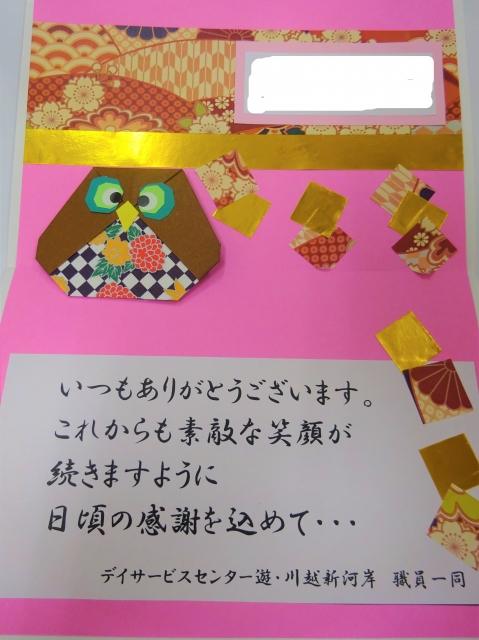 いつもありがとうございます。
これからも素敵な笑顔が
続きますように
日頃の感謝を込めて・・・
デイサービスセンター遊・川越新河岸 職員一同